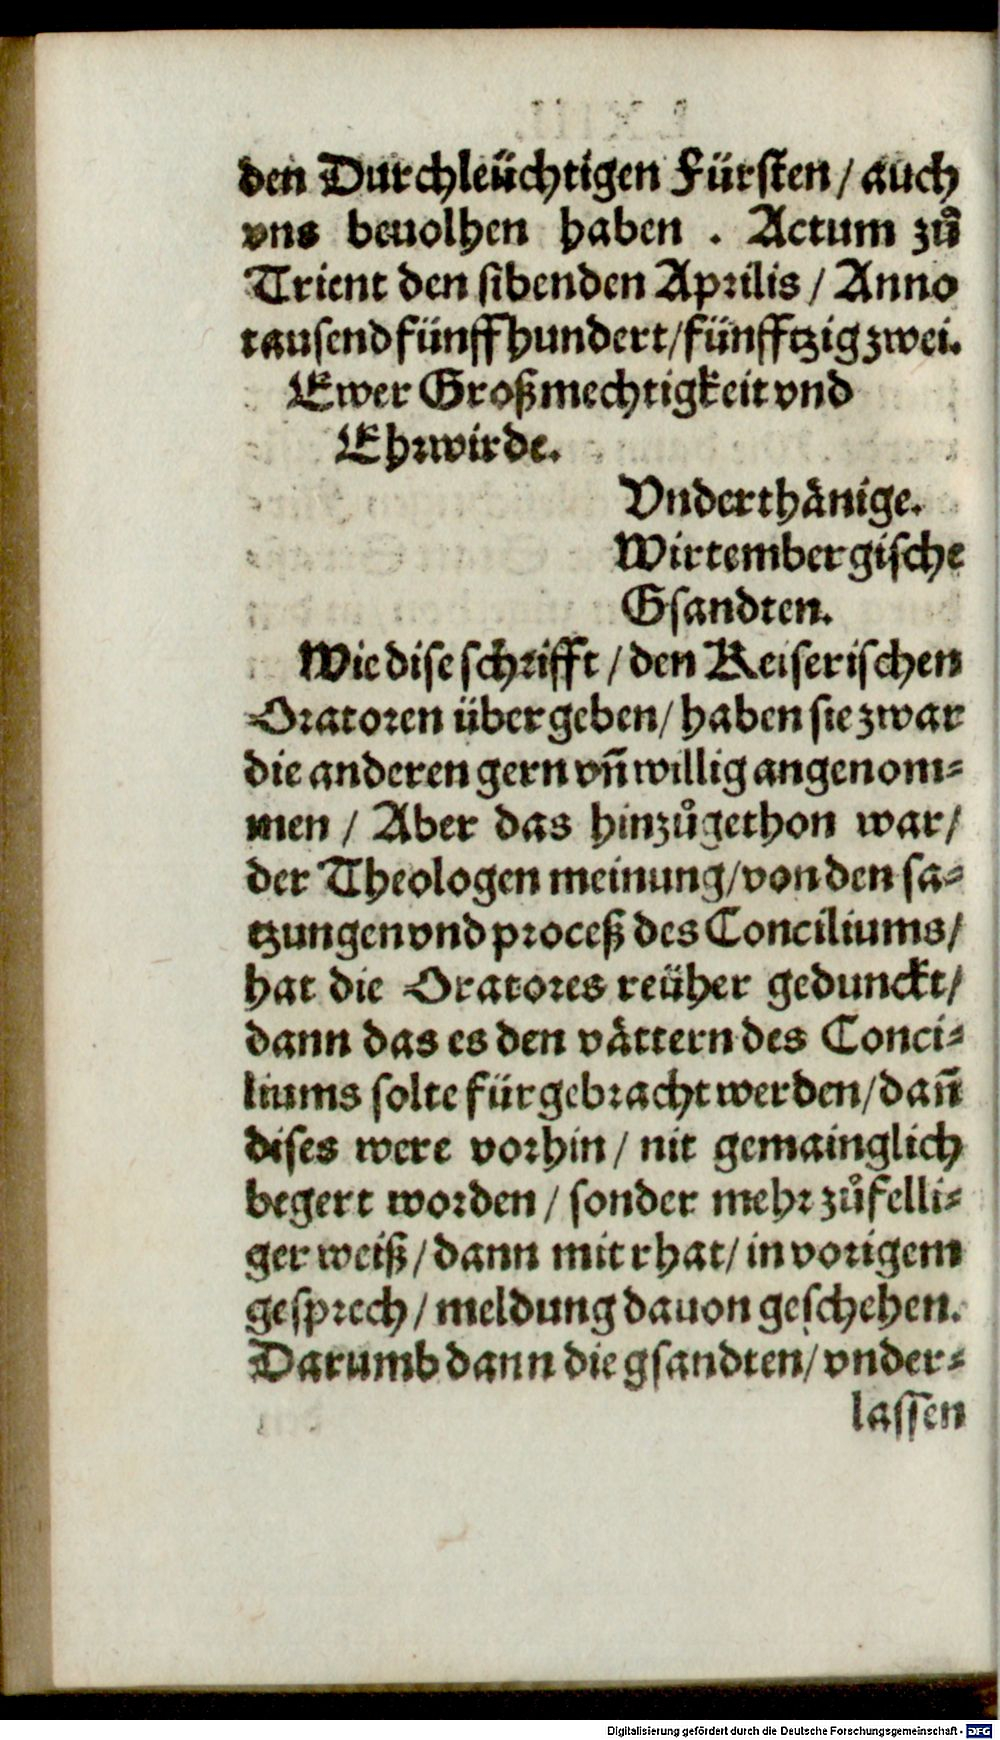 den Durchleüchtigen Fürsten / auch
vns beuolhen haben . Actum zů
Trient den sibenden Aprilis / Anno
tausend fünff hundert / fünfftzig zwei.
Ewer Großmechtigkeit vnd
Ehrwirde.
Vnderthänige.
Wirtembergische
Gsandten.
Wie dise schrifft / den Keiserischen
Oratoren übergeben / haben sie zwar
die anderen gern vn̄ willig angenom⸗
men / Aber das hinzůgethon war /
der Theologen meinung / von den sa⸗
tzungen vnd proceß des Conciliums /
hat die Oratores reüher gedunckt /
dann das es den vättern des Conci⸗
liums solte fürgebracht werden / dan̄
dises were vorhin / nit gemainglich
begert worden / sonder mehr zůfelli⸗
ger weiß / dann mit rhat / in vorigem
gesprech / meldung dauon geschehen.
Darumb dann die gsandten / vnder⸗
lassen
Digitalisierung gefördert durch die Deutsche Forschungsgemeinschaft - DFG